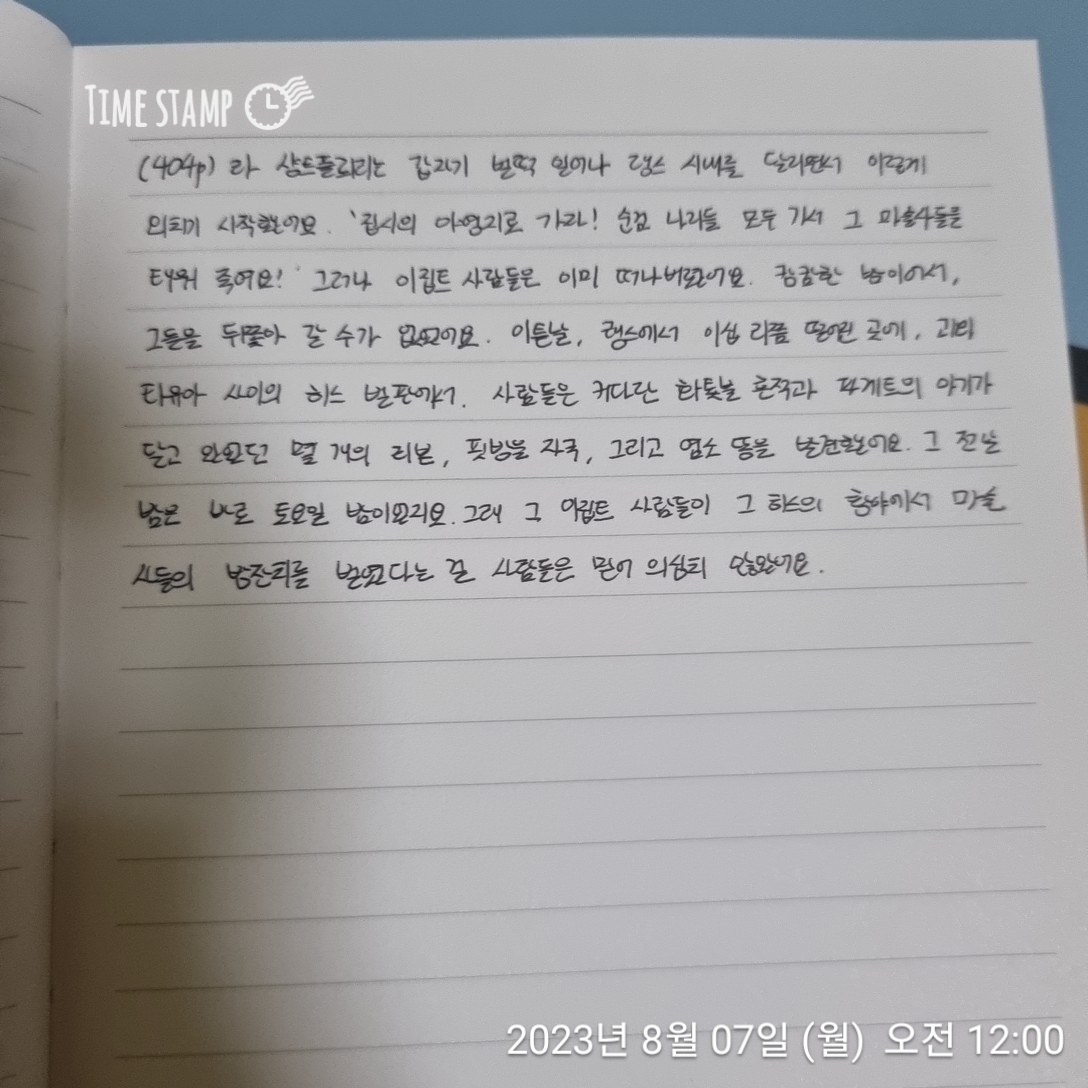 TIME STAMP
(404p) 라 샹트플뢰리는 갑자기 벌떡 일어나 랭스 시내를 달리면서 이렇게
외치기 시작했어요. '집시의 야영지로 가라! 순검 나리들 모두 가서 그 마술사들을
태워 죽여요!' 그러나 이집트 사람들은 이미 떠나버렸어요. 캄캄한 밤이어서,
그들을 뒤쫓아 갈 수가 없었어요. 이튿날, 랭스에서 이십 리쯤 떨어진 곳에, 괴와
티유아 사이의 히스 벌판에서. 사람들은 커다란 화톳불 흔적과 파게트의 아기가
달고 있었던 몇 개의 리본, 핏방울 자국, 그리고 염소 똥을 발견했어요. 그 전날
밤은 바로 토요일 밤이었지요. 그래 그 이집트 사람들이 그 히스의 황야에서 마술
사들의 밤잔치를 벌였다는 걸 사람들은 믿어 의심치 않았어요.
2023년 8월 07일 (월) 오전 12:00